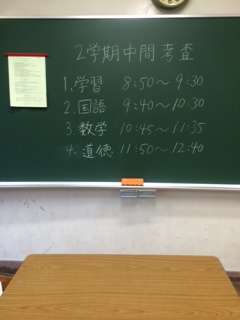 2学期中間考査
1.学習 8:50〜9:30
2.国語 9:40〜10:30
3.数学 10:45〜11:35
4.道徳 11:50〜12:40